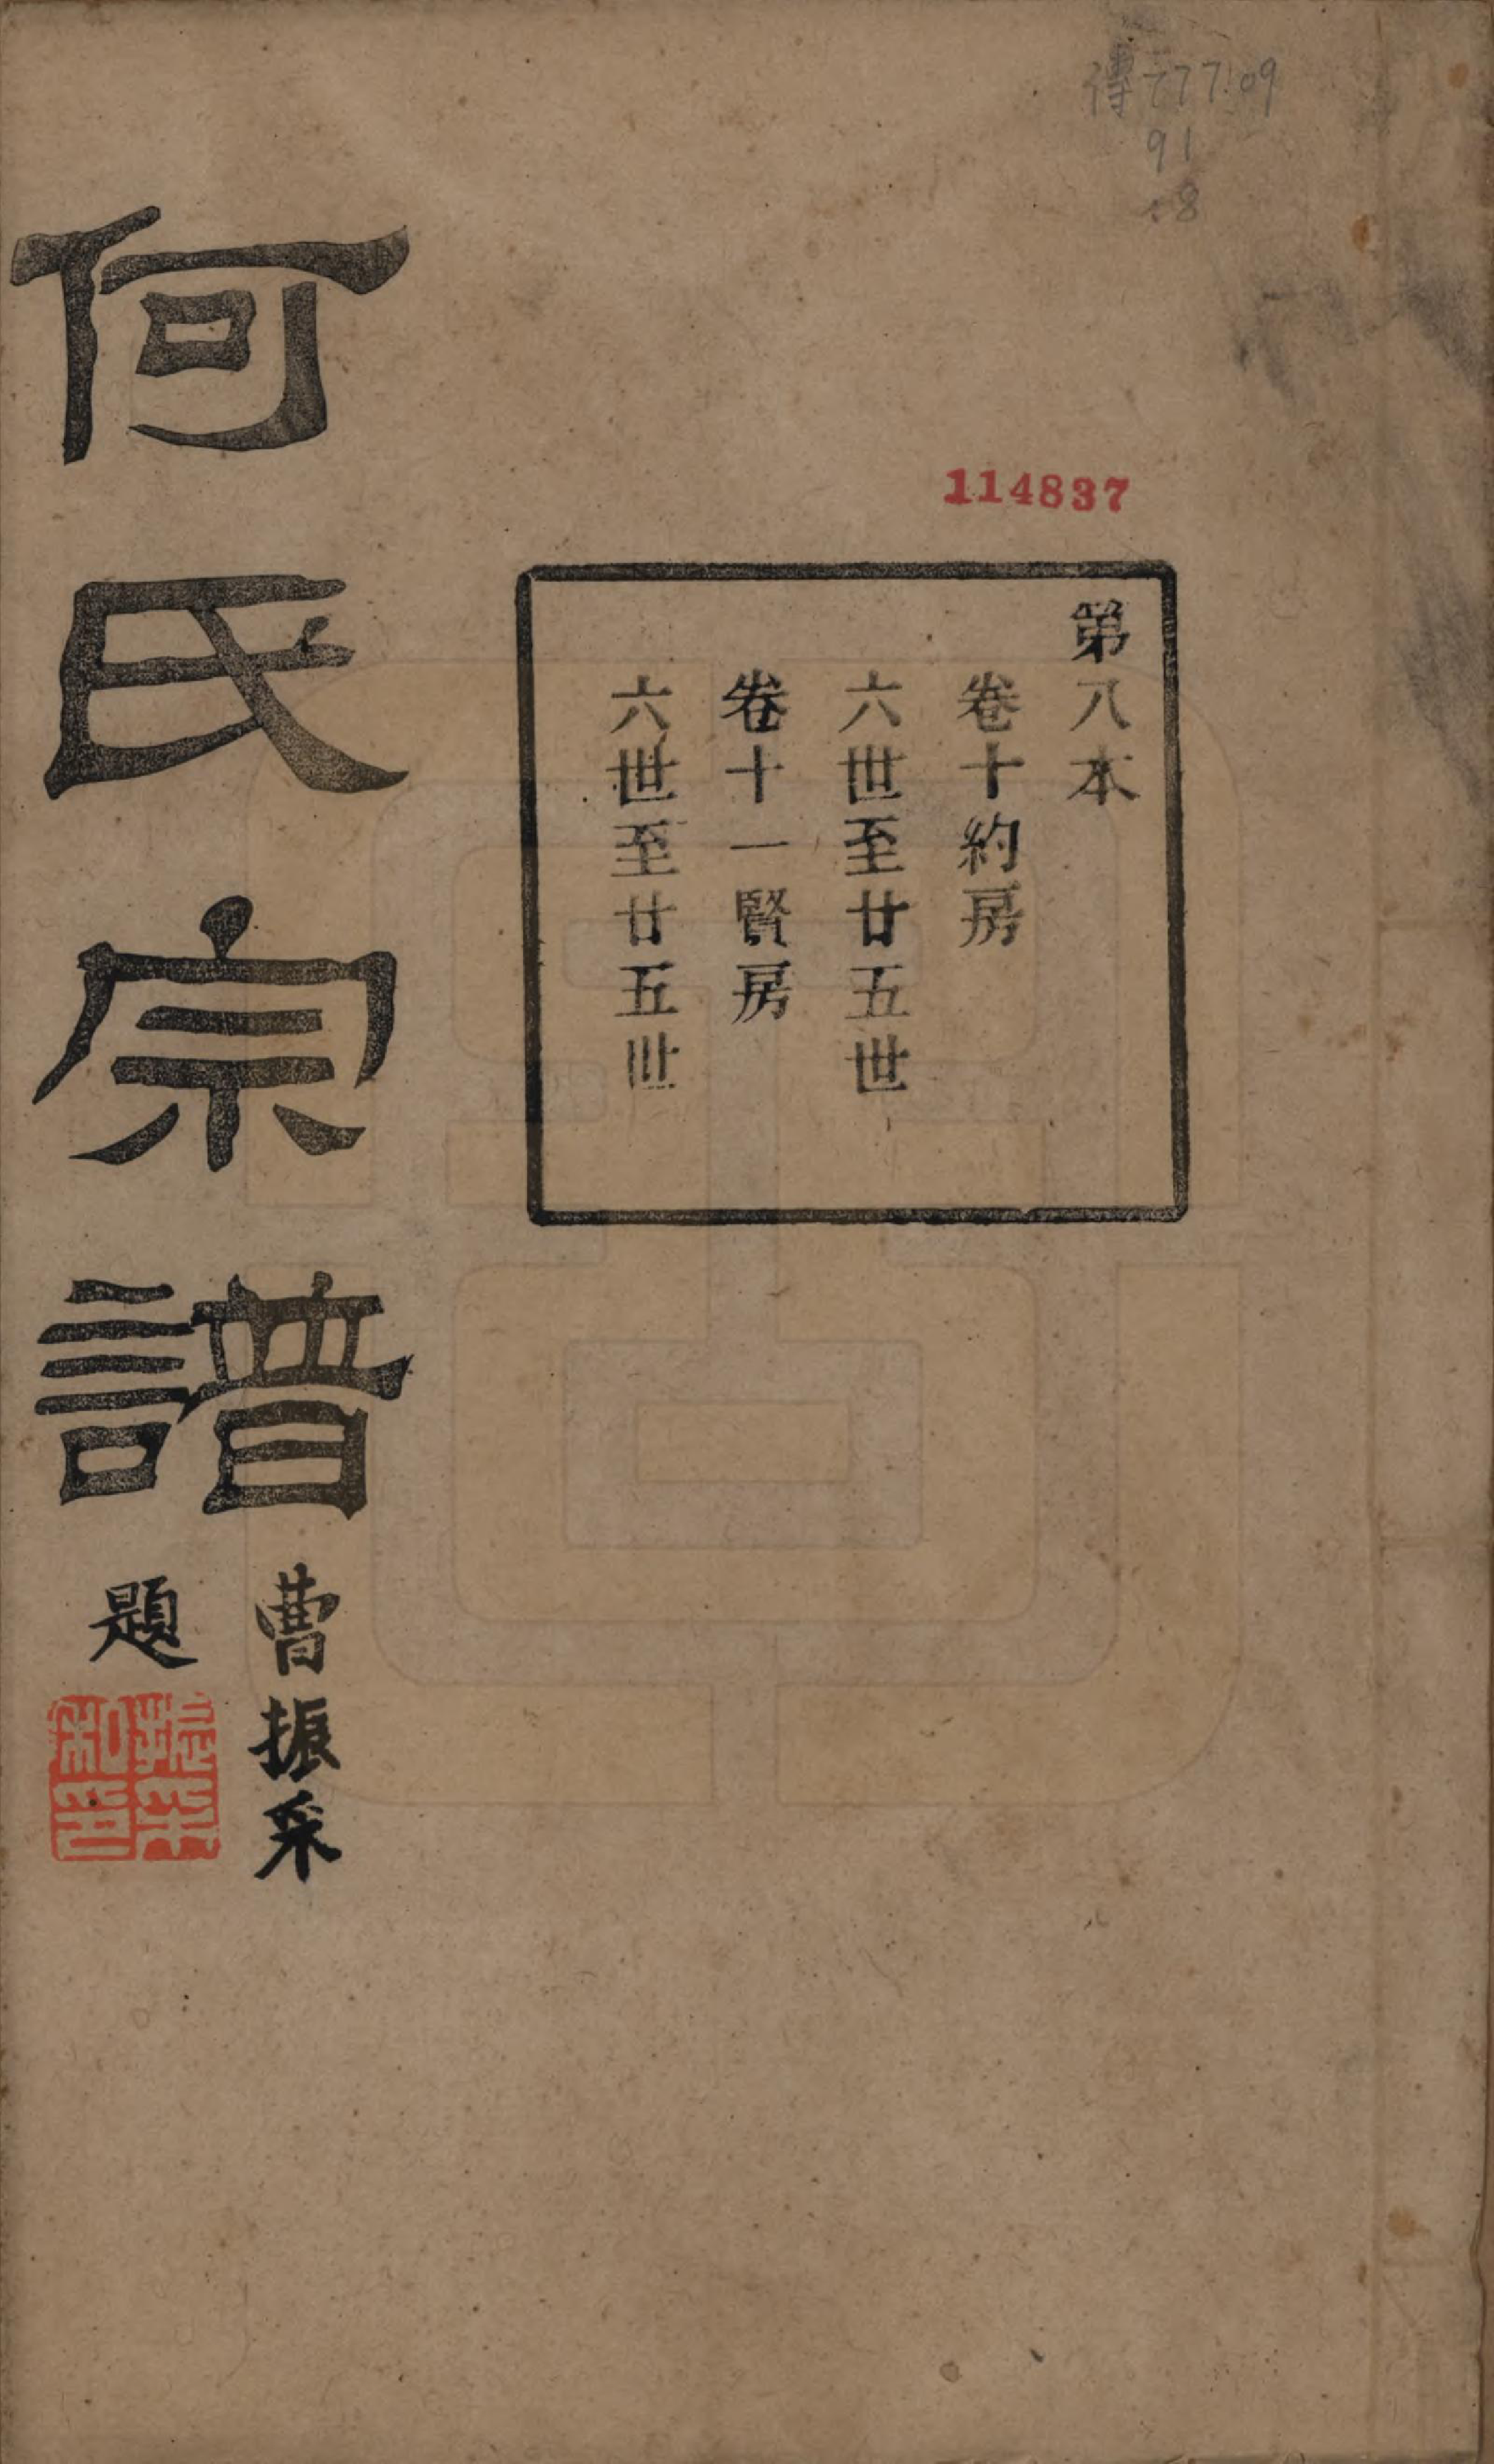 傳777.09
91
:8
114837
第八本
卷十約房
六世至廿五世
卷十一賢房
六世至廿五世
何氏宗譜
曹振采
題
振采
私印